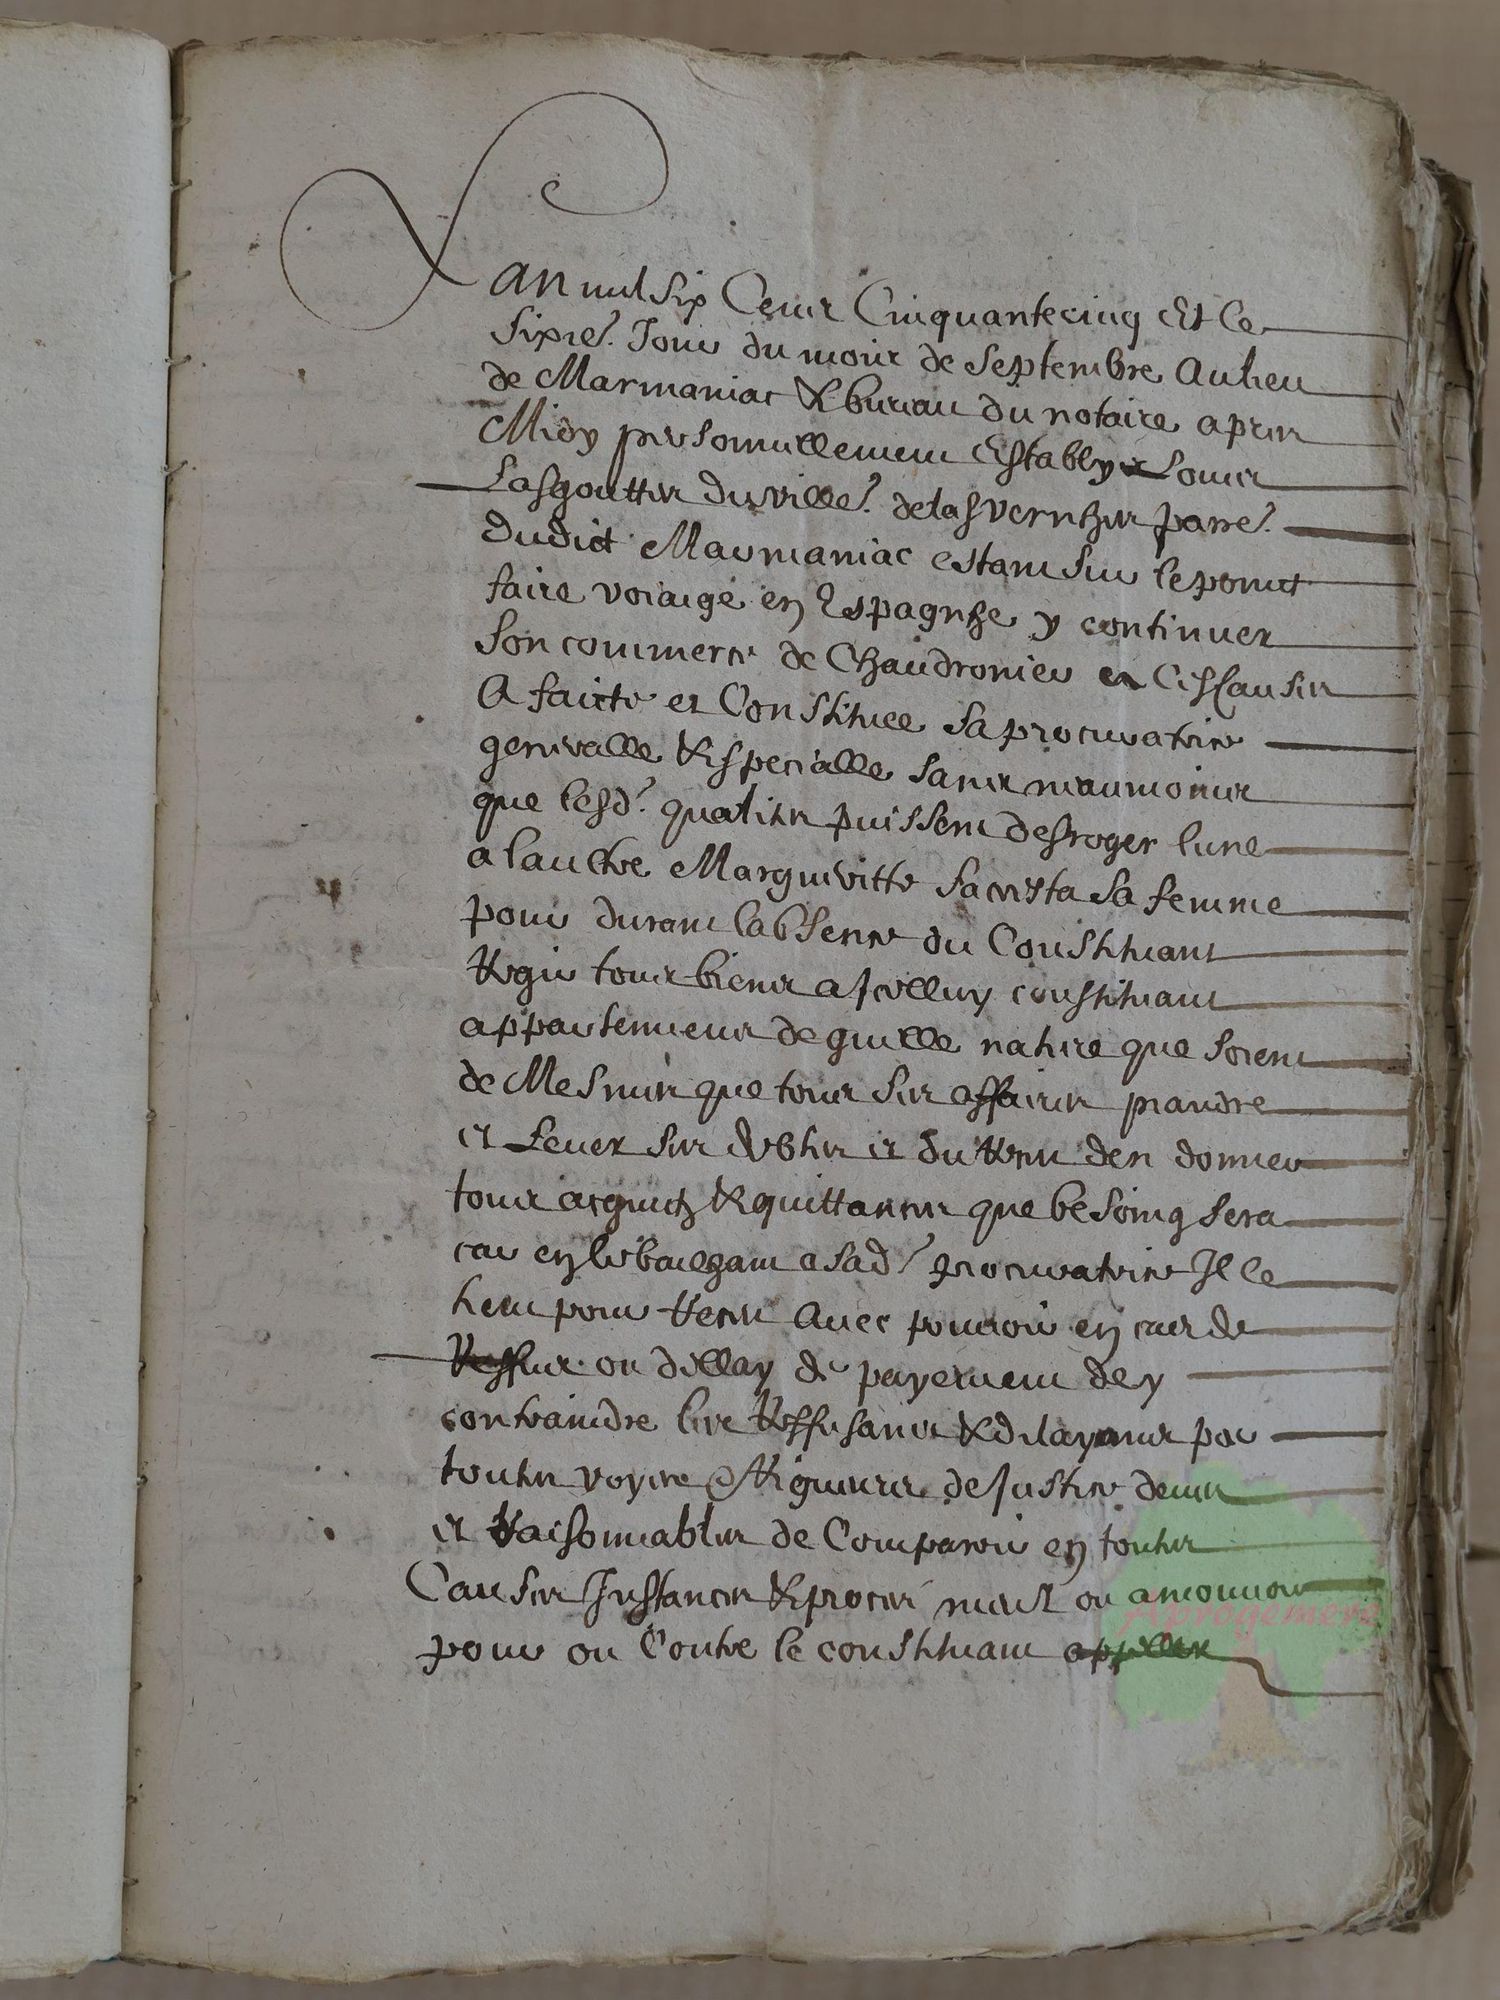 Lan mil six Cens Cinquantecinq Et Le
sixie. Jour du mois de Septembre Au lieu
de Marmaniac & bureau du notaire apres
Midy personnellement Estably Louis
Lasgouttes du villa. de las vernhes parre.
dudict Marmaniac estant sur le poinct
faire voiaige en Espagnhe y continuer
son commerce de Chaudronier
A faicte et Constituee sa procuratrice
generalle & specialle sans neaumoins
que lesd. qualites puissent desroger lune
a lautre Margueritte sa femme
pour durant labsence du Constituant
Regir tous biens a Icelluy constituant
appartenens de quelle nature que soient
de Mesmes que tous ses affaires prandre
et Lever ses debtes et du Receu den donner
tous acquictz & quittances que besoing sera
car en le bailhant a sad. procuratrice Il le
tient pour Receu Avec pouvoir en cas de
Reffus ou dellay de payement dey
contraindre les Reffusans & dilayans par
toutes voyes & Rigueurs de Justice deues
et Raisonnables de Comparoir en toutes
Causes Instances & proces meus ou a mouvoir
pour ou Contre le constituant appeller
Aprogemere